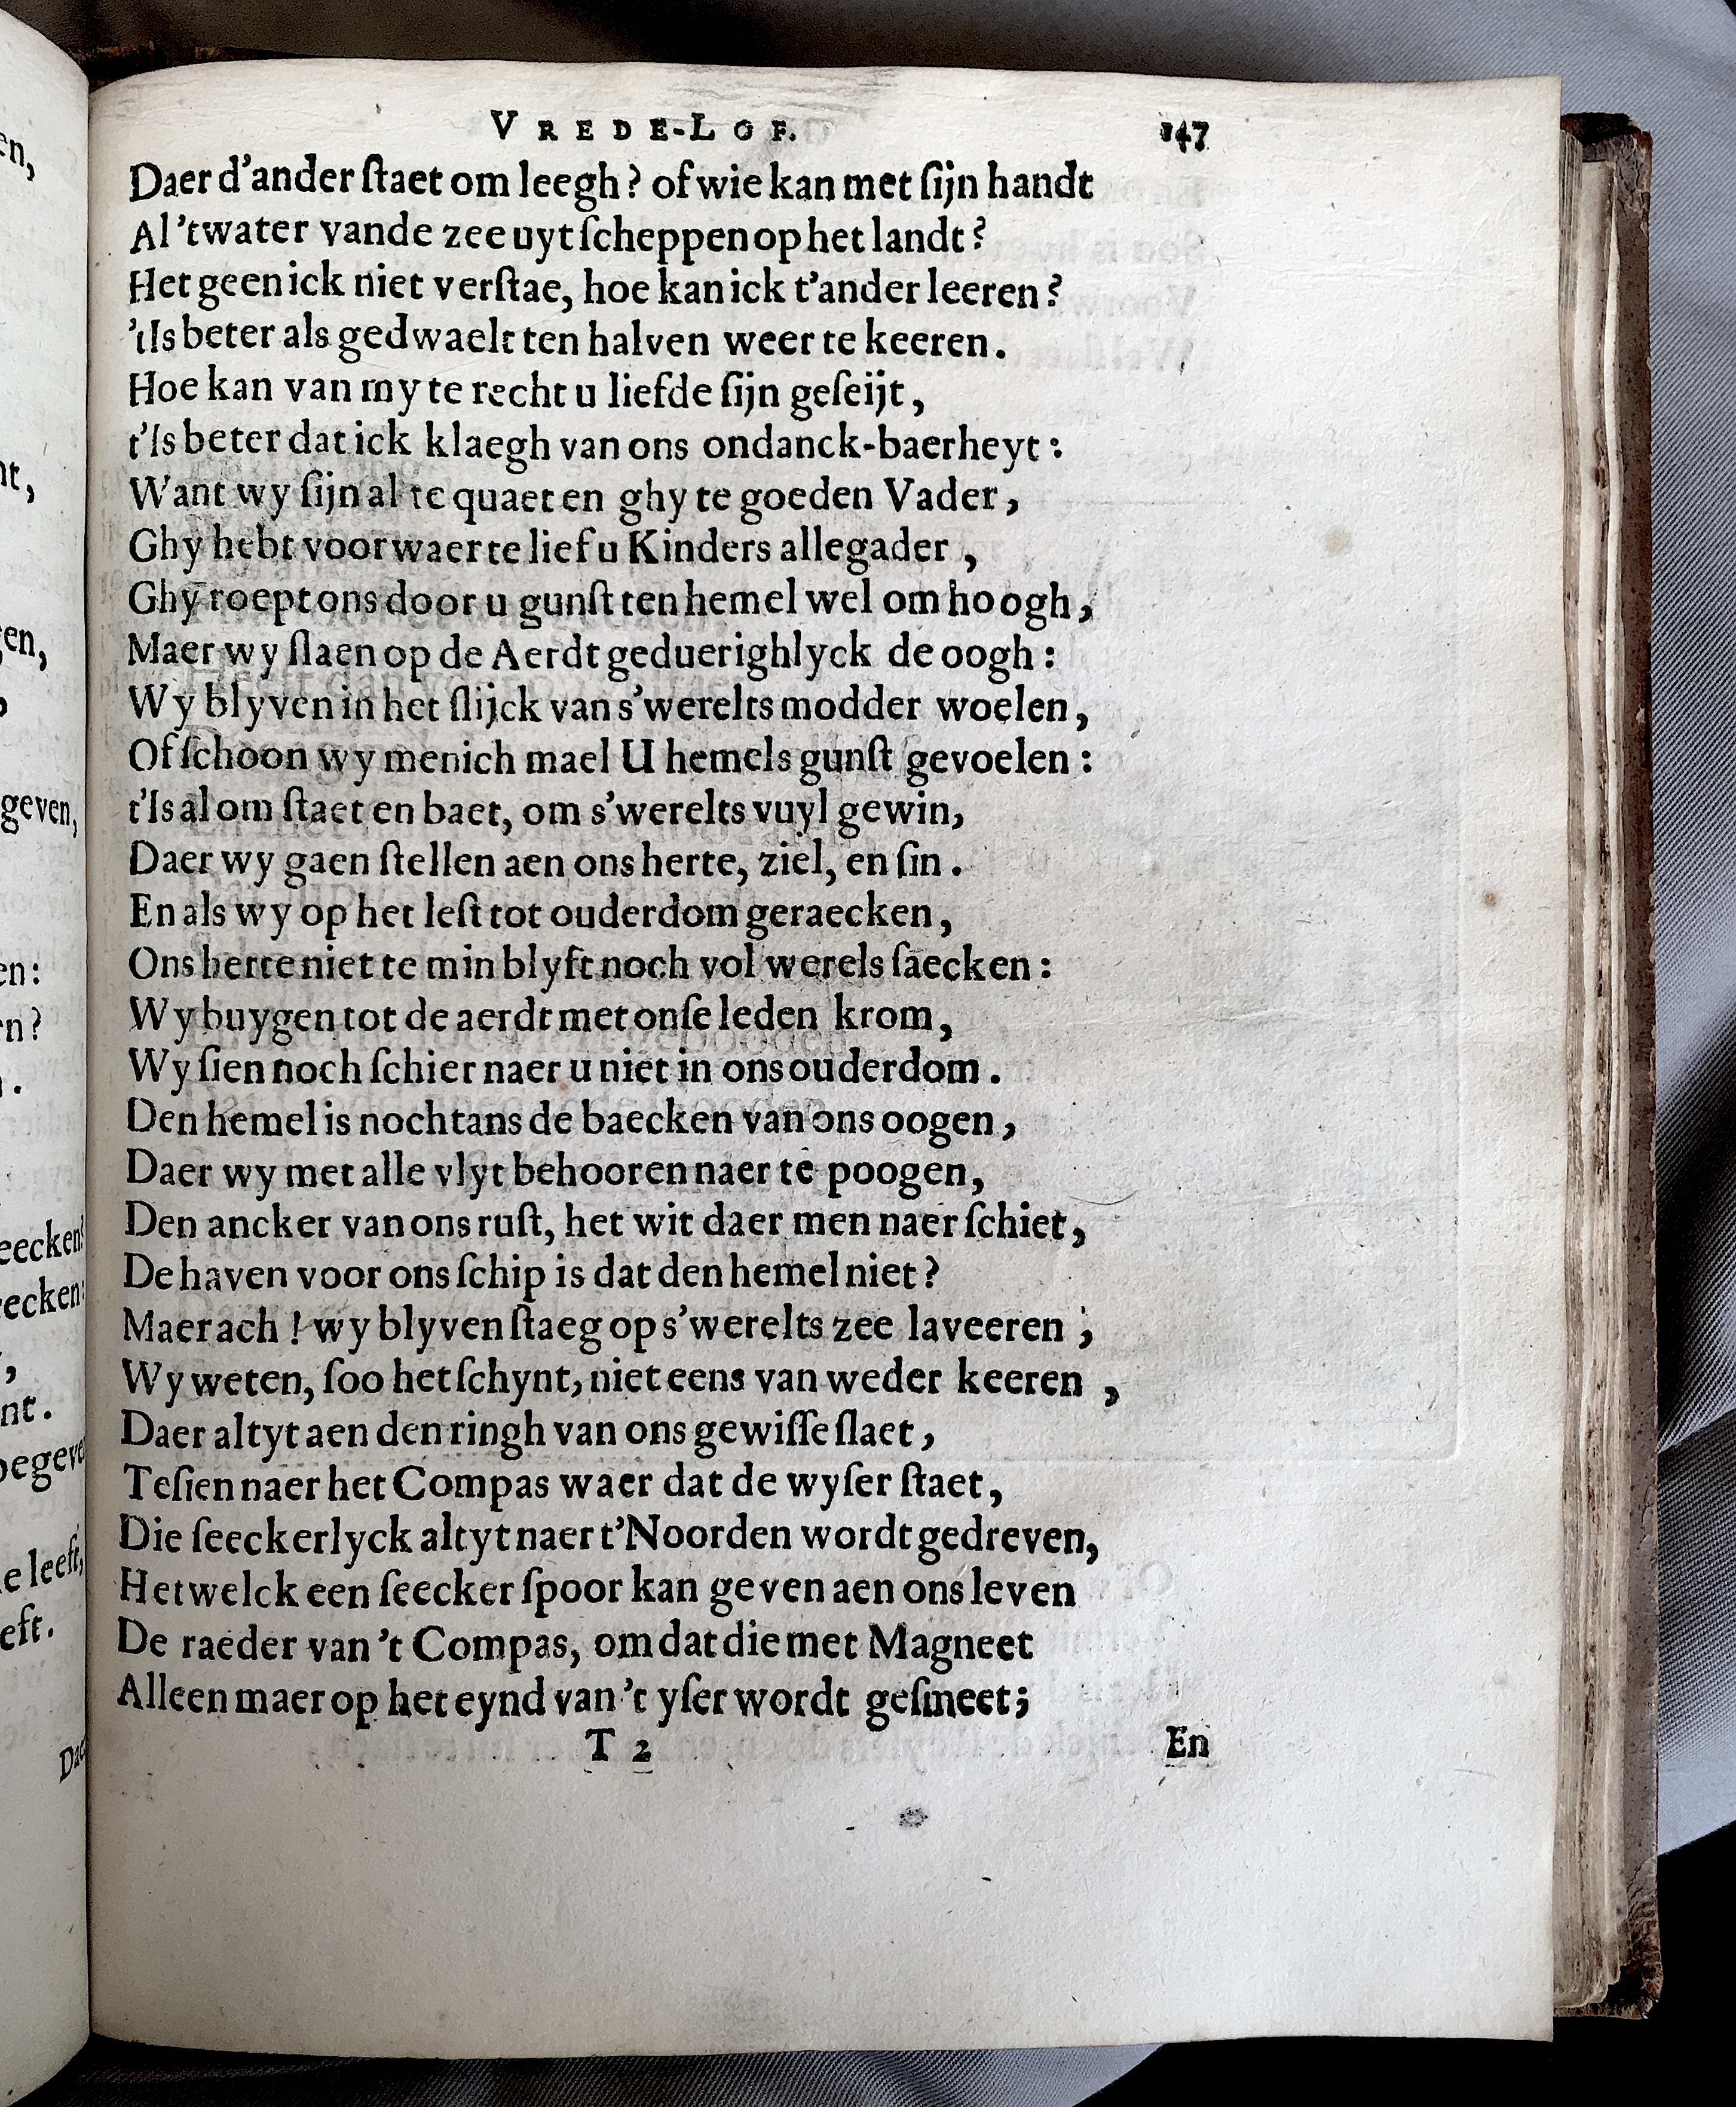 VREDE-LOF. 147
Daer d'ander ſtaet om leegh? of wie kan met ſijn handt
Al 'twater vande zee uyt ſcheppen op het landt?
Het geen ick niet verſtae, hoe kan ick t'ander leeren?
'tIs beter als gedwaelt ten halven weer te keeren.
Hoe kan van my te recht u liefde ſijn geſeijt,
t'Is beter dat ick klaegh van ons ondanck-baerheyt:
Want wy ſijn al te quaet en ghy te goeden Vader,
Ghy hebt voorwaer te lief u Kinders allegader,
Ghy roept ons door u gunſt ten hemel wel om hoogh,
Maer wy ſlaen op de Aerdt geduerighlyck de oogh:
Wy blyven in het ſlijck van s'werelts modder woelen,
Of ſchoon wy menich mael U hemels gunſt gevoelen:
t'Is al om ſtaet en baet, om s'werelts vuyl gewin,
Daer wy gaen ſtellen aen ons herte, ziel, en ſin.
En als wy op het leſt tot ouderdom geraecken,
Ons herte niet te min blyft noch vol werels ſaecken:
Wy buygen tot de aerdt met onſe leden krom,
Wy ſien noch ſchier naer u niet in ons ouderdom.
Den hemel is nochtans de baecken van ons oogen,
Daer wy met alle vlyt behooren naer te poogen,
Den ancker van ons ruſt, het wit daer men naer ſchiet,
De haven voor ons ſchip is dat den hemel niet?
Maer ach! wy blyven ſtaeg op s'werelts zee laveeren;
Wy weten, ſoo het ſchynt, niet eens van weder keeren,
Daer altyt aen den ringh van ons gewiſſe ſlaet,
Te ſien naer het Compas waer dat de wyſer ſtaet,
Die ſeeckerlyck altyt naer t'Noorden wordt gedreven,
Het welck een ſeecker ſpoor kan geven aen ons leven
De raeder van 't Compas, om dat die met Magneet
Alleen maer op het eynd van 't yſer wordt geſmeet;
T 2 En